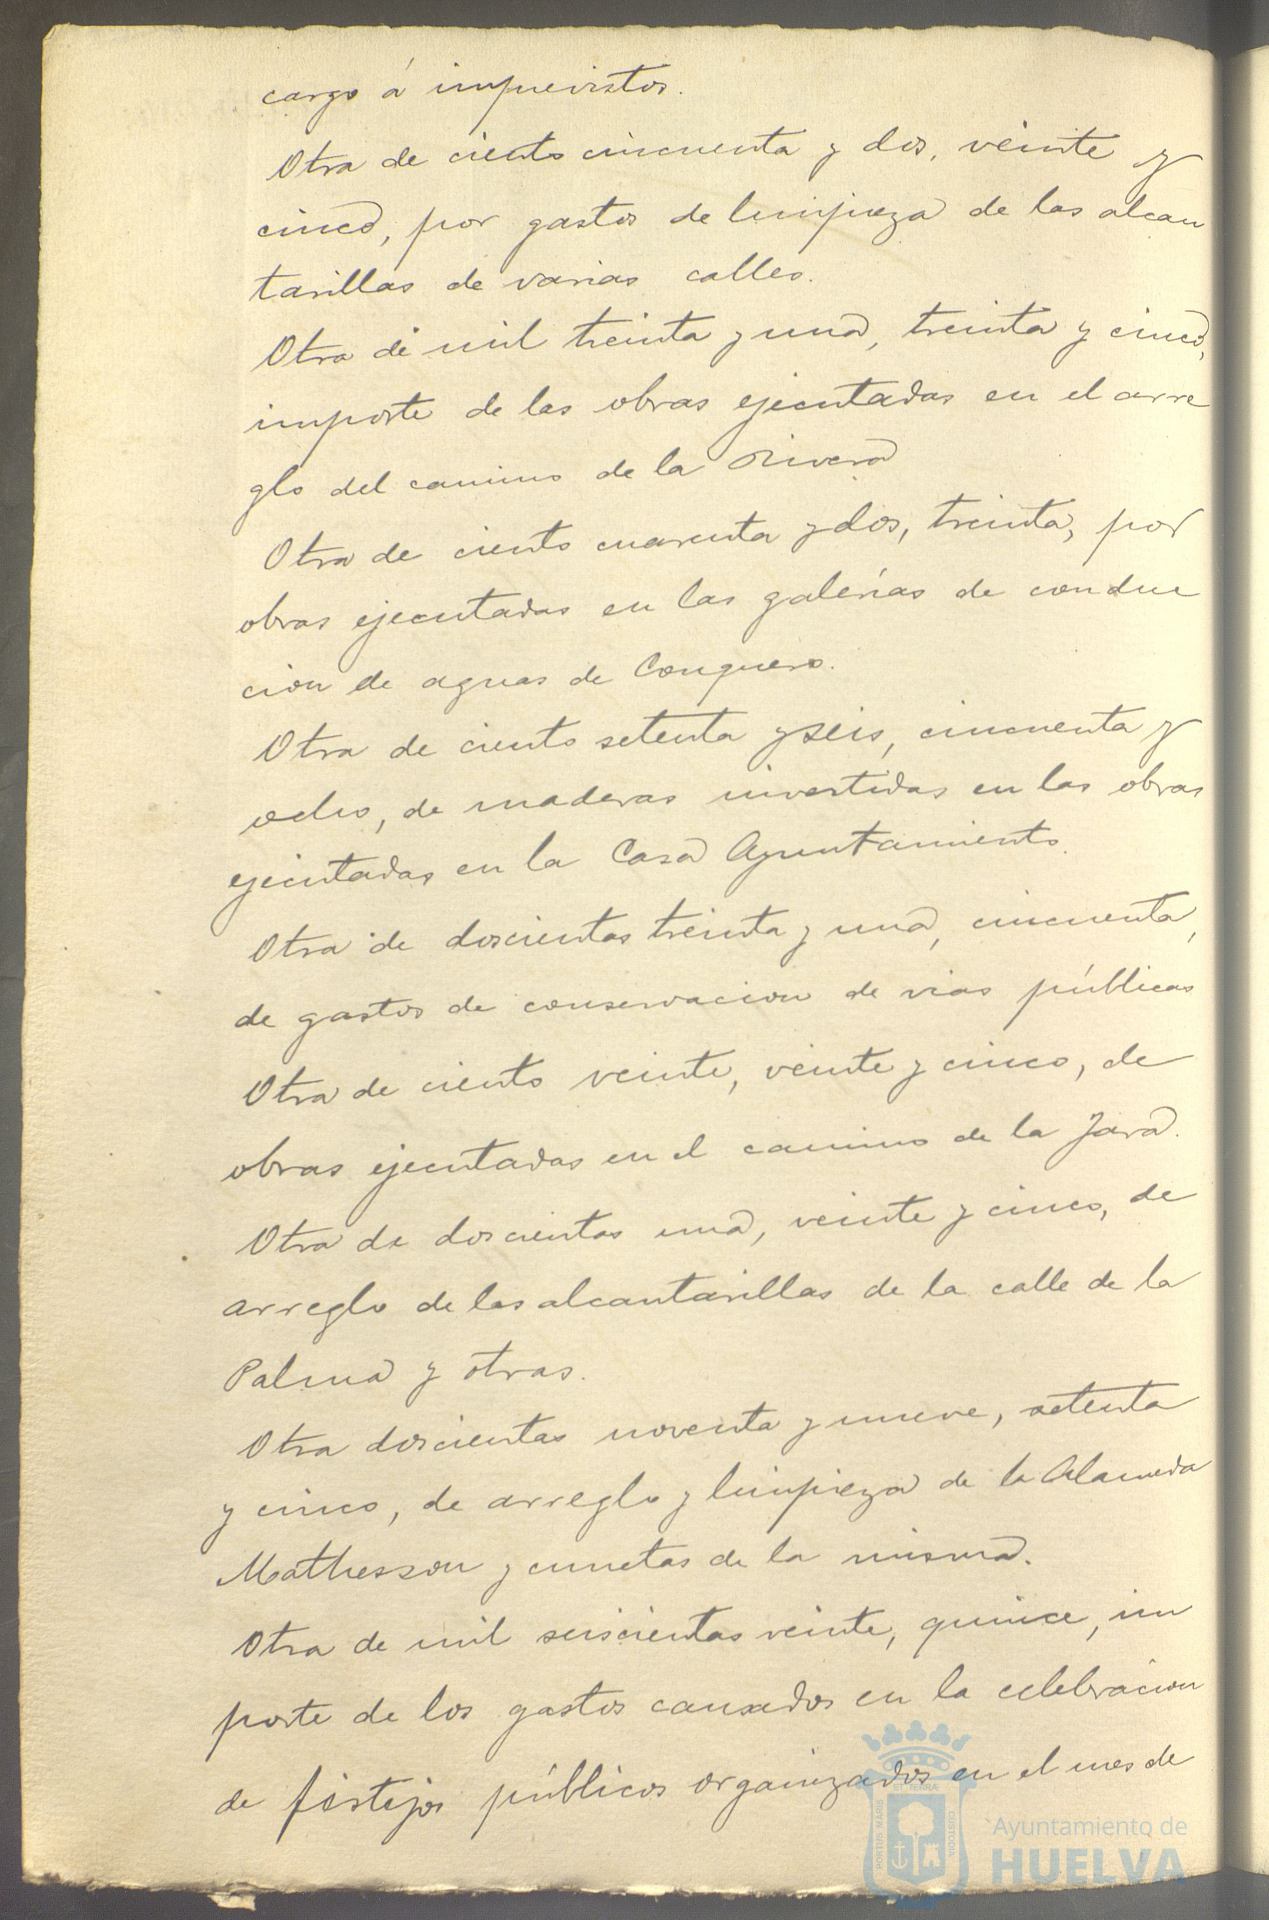 cargo á imprevistos.
Otra de ciento cincuenta y dos, veinte y
cinco, por gastos de limpieza de las alcan
tarillas de varias calles.
Otra de mil treinta y una, treinta y cinco,
importe de las obras ejecutadas en el arre
glo del camino de la Rivera
Otra de ciento cuarenta y dos, treinta, por
obras ejecutadas en las galerías de conduc
cion de aguas de Conquero.
Otra de ciento setenta y seis, cincuenta y
ocho, de maderas invertidas en las obras
ejecutadas en la Casa Ayuntamiento.
Otra de doscientas treinta y una, cincuenta,
de gastos de conservacion de vias públicas
Otra de ciento veinte, veinte y cinco, de
obras ejecutadas en el camino de la Jara.
Otra de doscientas una, veinte y cinco, de
arreglo de las alcantarillas de la calle de la
Palma y otras.
Otra doscientas noventa y nueve, setenta
y cinco, de arreglo y limpieza de la Alameda
Mathesson y cunetas de la misma.
Otra de mil seiscientas veinte, quince, im
porte de los gastos causados en la celebracion
de festejos públicos organizados en el mes de
PORTUS MARIS
ET TERRÆ
CUSTODIA
Ayuntamiento de
HUELVA